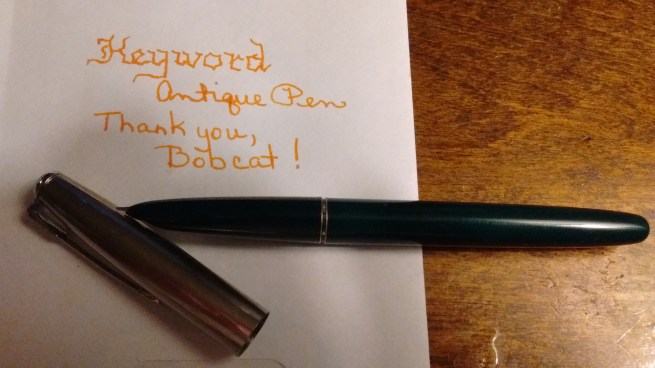 Keyword
Antique Pen
Thank you,
Bobcat!